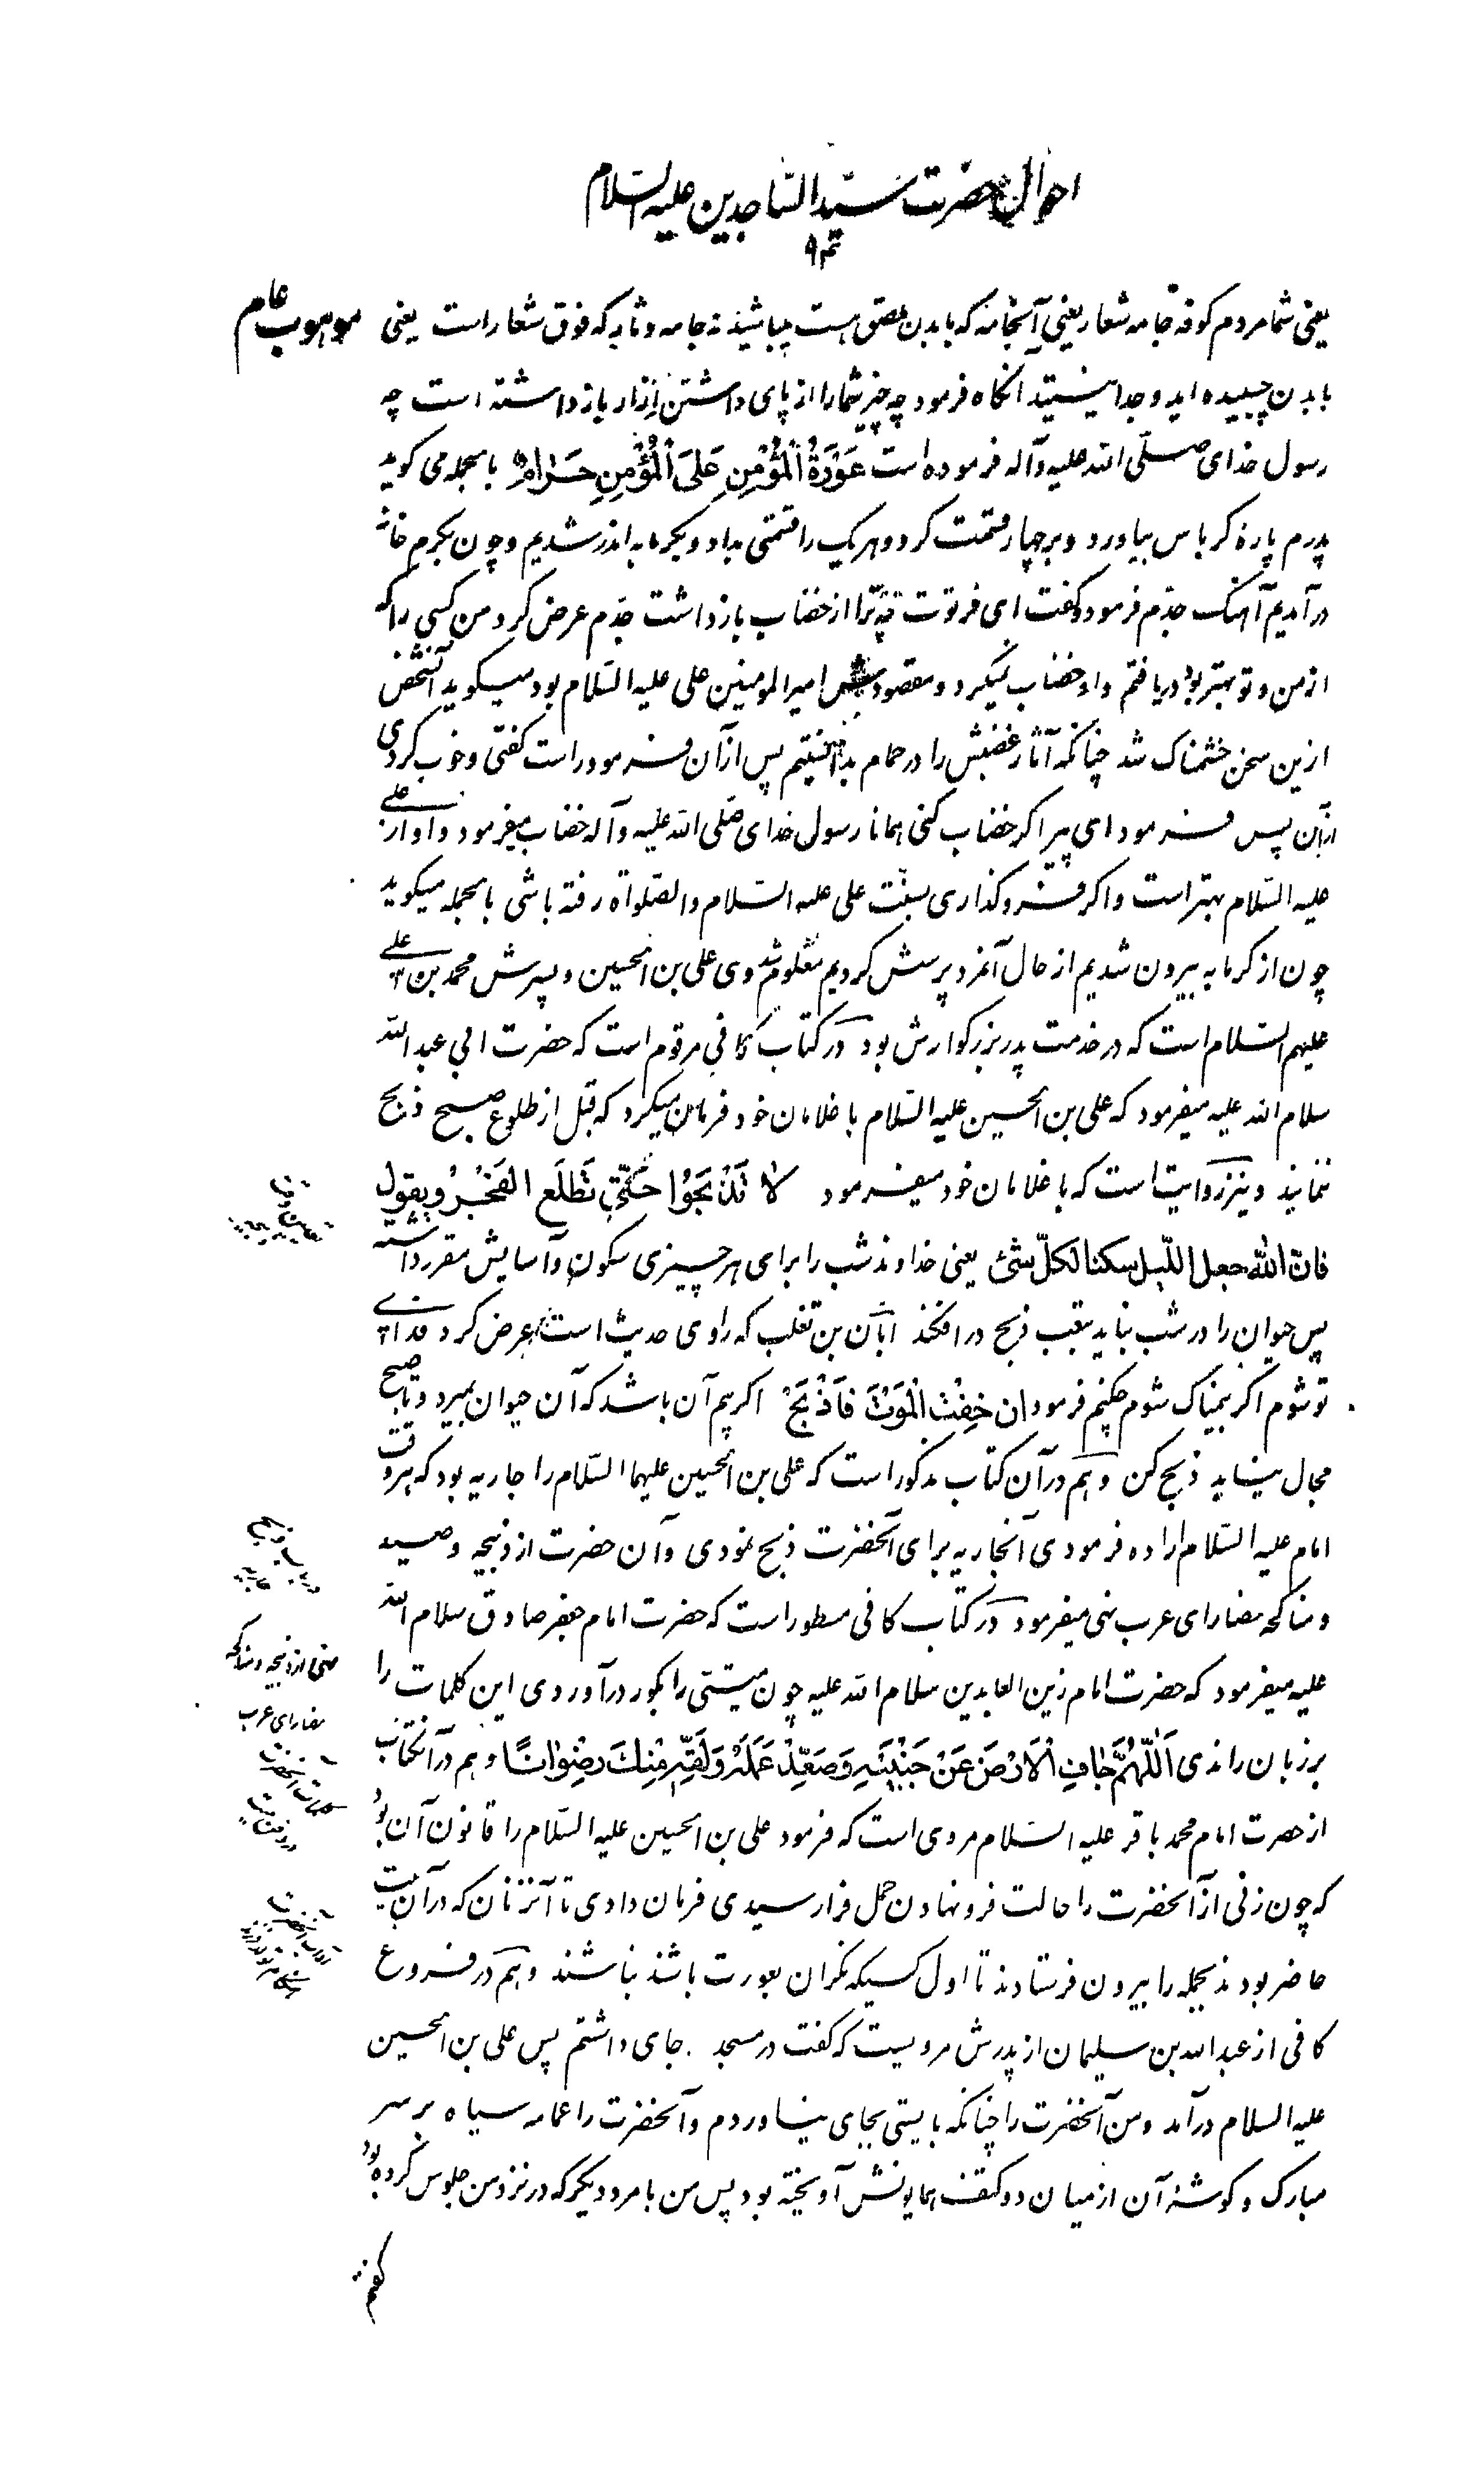 احوال حضرت سید الساجدین علیه السلام
موهوب عام
یعنی شما مردم کوفه جامه شعار یعنی آنجامه که ببدن ملصق است میباشید نه جامه دثار که فوق شعار است یعنی
ببدن چسبیده اید و جدا نیستید آنگاه فرمود چه چیز شما را از پای داشتن ازار باز داشته است چه
رسول خدای صلی الله علیه وآله فرموده است عَوْرَةُ الْمُؤْمِنِ عَلَی الْمُؤْمِنِ حَرَامٌ بالجمله می کوید
پدرم پارۀ کرباس بیاورد و بر چهار قسمت کرد و هر یک را قسمتی بداد و بکرمابه اندر شدیم و چون بکرم خانه
درآمدیم آهنک جدم فرمود و کفت ای فرتوت چه ترا از خضاب باز داشت جدم عرض کرد من کسی را که
از من و تو بهتر بود دریافتم و او خضاب نمیکرد و مقصودش امیرالمومنین علی علیه السلام بود میکوید آنشخص
ازین سخن خشمناک شد چنانکه آثار غضبش را در حمام بدانستیم پس از آن فرمود راست کفتی و خوب کردی
از آن پس فرمود ای پیر اکر خضاب کنی همانا رسول خدای صلی الله علیه وآله خضاب میفرمود و او از علی
علیه السلام بهتر است و اکر فروکذاری بسنت علی علیه السلام والصلواة رفته باشی بالجمله میکوید
چون از کرمابه بیرون شدیم از حال آنمرد پرسش کردیم معلوم شد وی علی بن الحسین و پسرش محمد بن علی
علیهم السلام است که در خدمت پدر بزرکوارش بود در کتاب کافی مرقوم است که حضرت ابی عبد الله
سلام الله علیه میفرمود که علی بن الحسین علیه السلام با غلامان خود فرمان میکرد که قبل از طلوع صبح ذبح
ننمایند و نیز روایت است که با غلامان خود میفرمود لا تَذْبَحُوا حَتّی تَطْلَعَ الفَجْرُ ویقول
فان الله جعل اللیل سکنا لکل شئ یعنی خداوند شب را برای هر چیزی سکون و آسایش مقرر داشته
پس حیوان را در شب نباید بتعب ذبح در افکند ابان بن تغلب که راوی حدیث است عرض کرد فدای
تو شوم اکر بیمناک شوم چکنم فرمود ان خِفْتَ الْمَوْتَ فَاذْبَحْ اکر بیم آن باشد که آن حیوان بمیرد و تا صبح
مجال نیاید ذبح کن و هم در آن کتاب مذکور است که علی بن الحسین علیهما السلام را جاریه بود که هر وقت
امام علیه السلام اراده فرمودی آنجاریه برای آنحضرت ذبح نمودی وآن حضرت از ذبیحه و صید
و مناکحه نصارای عرب نهی میفرمود در کتاب کافی مسطور است که حضرت امام جعفر صادق سلام الله
علیه میفرمود که حضرت امام زین العابدین سلام الله علیه چون میتی را بکور درآوردی این کلمات را
بر زبان راندی اَللّهُمَّ جَافِ الْاَرْضَ عَنْ جَنْبَیْهِ وَصَعِّدْ عَمَلَهُ وَلَقِّهِ مِنْكَ رِضْوانًا و هم در آنکتاب
از حضرت امام محمد باقر علیه السلام مروی است که فرمود علی بن الحسین علیه السلام را قانون آن بود
که چون زنی از آنحضرت را حالت فرونهادن حمل فرا رسیدی فرمان دادی تا آنزنان که در آن بیت
حاضر بودند بجمله را بیرون فرستادند تا اول کسیکه نکران بعورت باشد نباشند و هم در فروع
کافی از عبدالله بن سلیمان از پدرش مرویست که کفت در مسجد جای داشتم پس علی بن الحسین
علیه السلام درآمد و من آنحضرت را چنانکه بایستی بجای نیاوردم وآنحضرت را عمامه سیاه بر سر
مبارک و کوشۀ آن از میان دو کتف همایونش آویخته بود پس من با مرد دیکر که در نزد من جلوس کرده بود
کفتم
نهی از ذبیحه و مناکحه
نصارای عرب